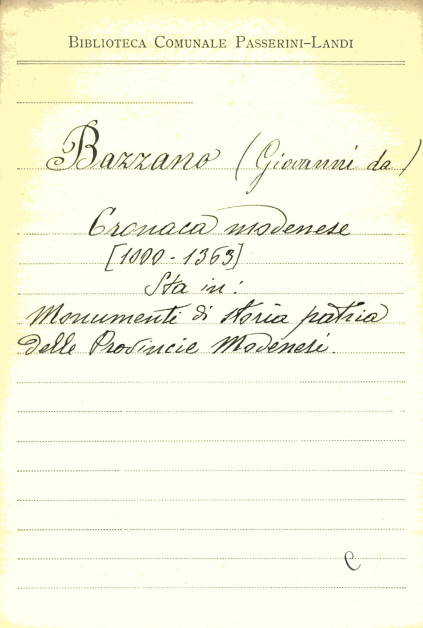 BIBLIOTECA COMUNALE PASSERINI-LANDI
Bazzano (Giovanni da)
Cronaca modenese
[1000-1363]
Sta in:
Monumenti di storia patria
delle Provincie Modenesi.
C